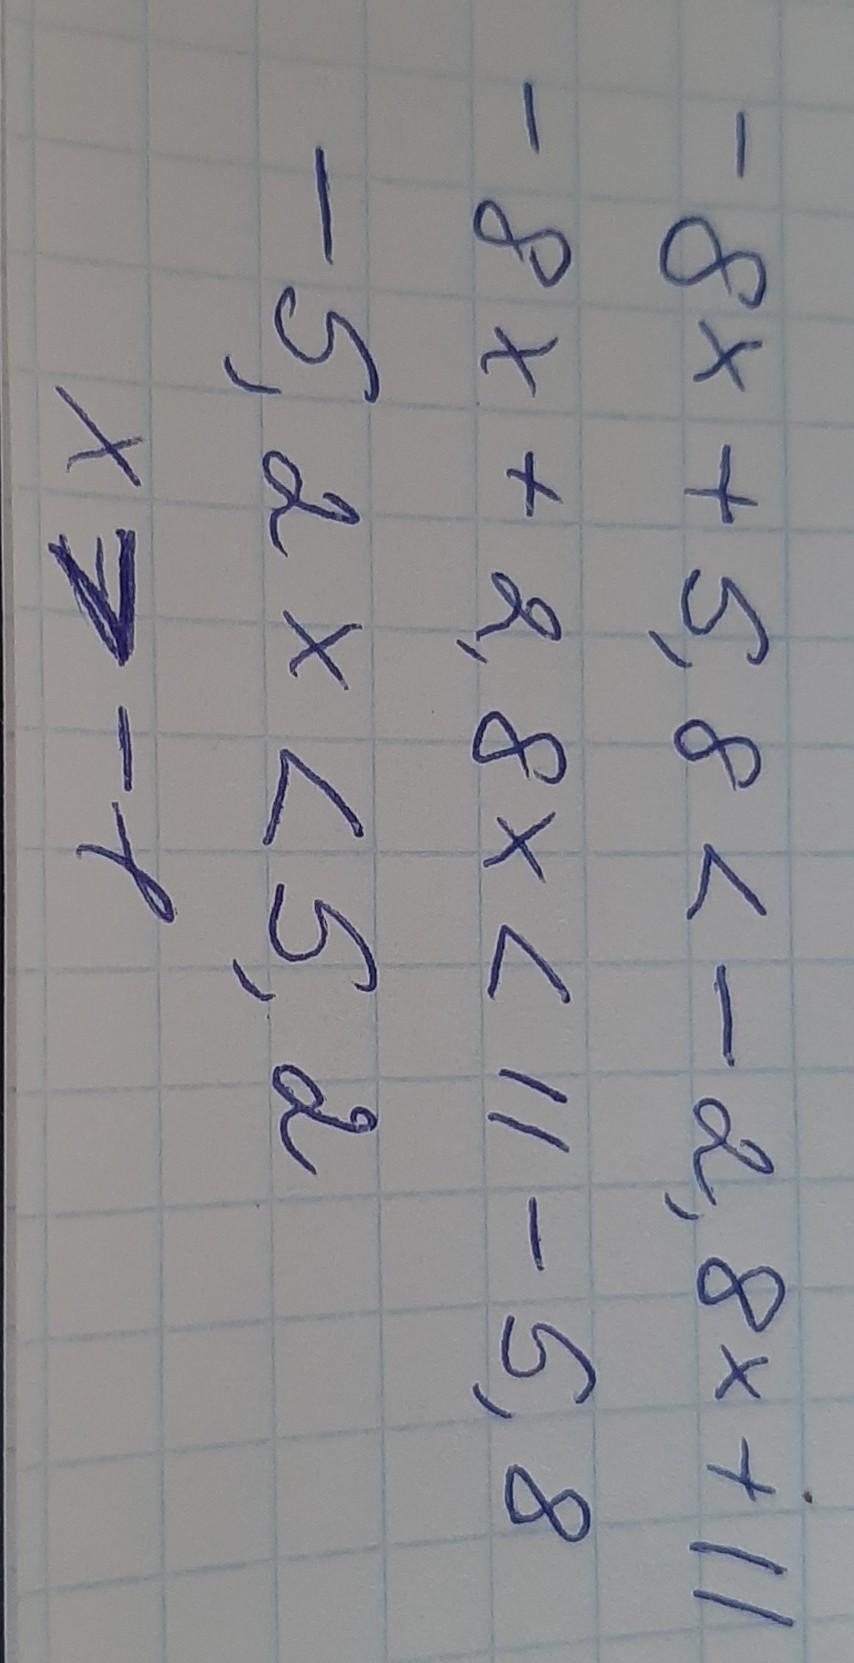 - 8x + 5,8 < - 2,8x + 11
- 8x + 2,8x < 11 - 5,8
- 5,2x < 5,2
x > - 1